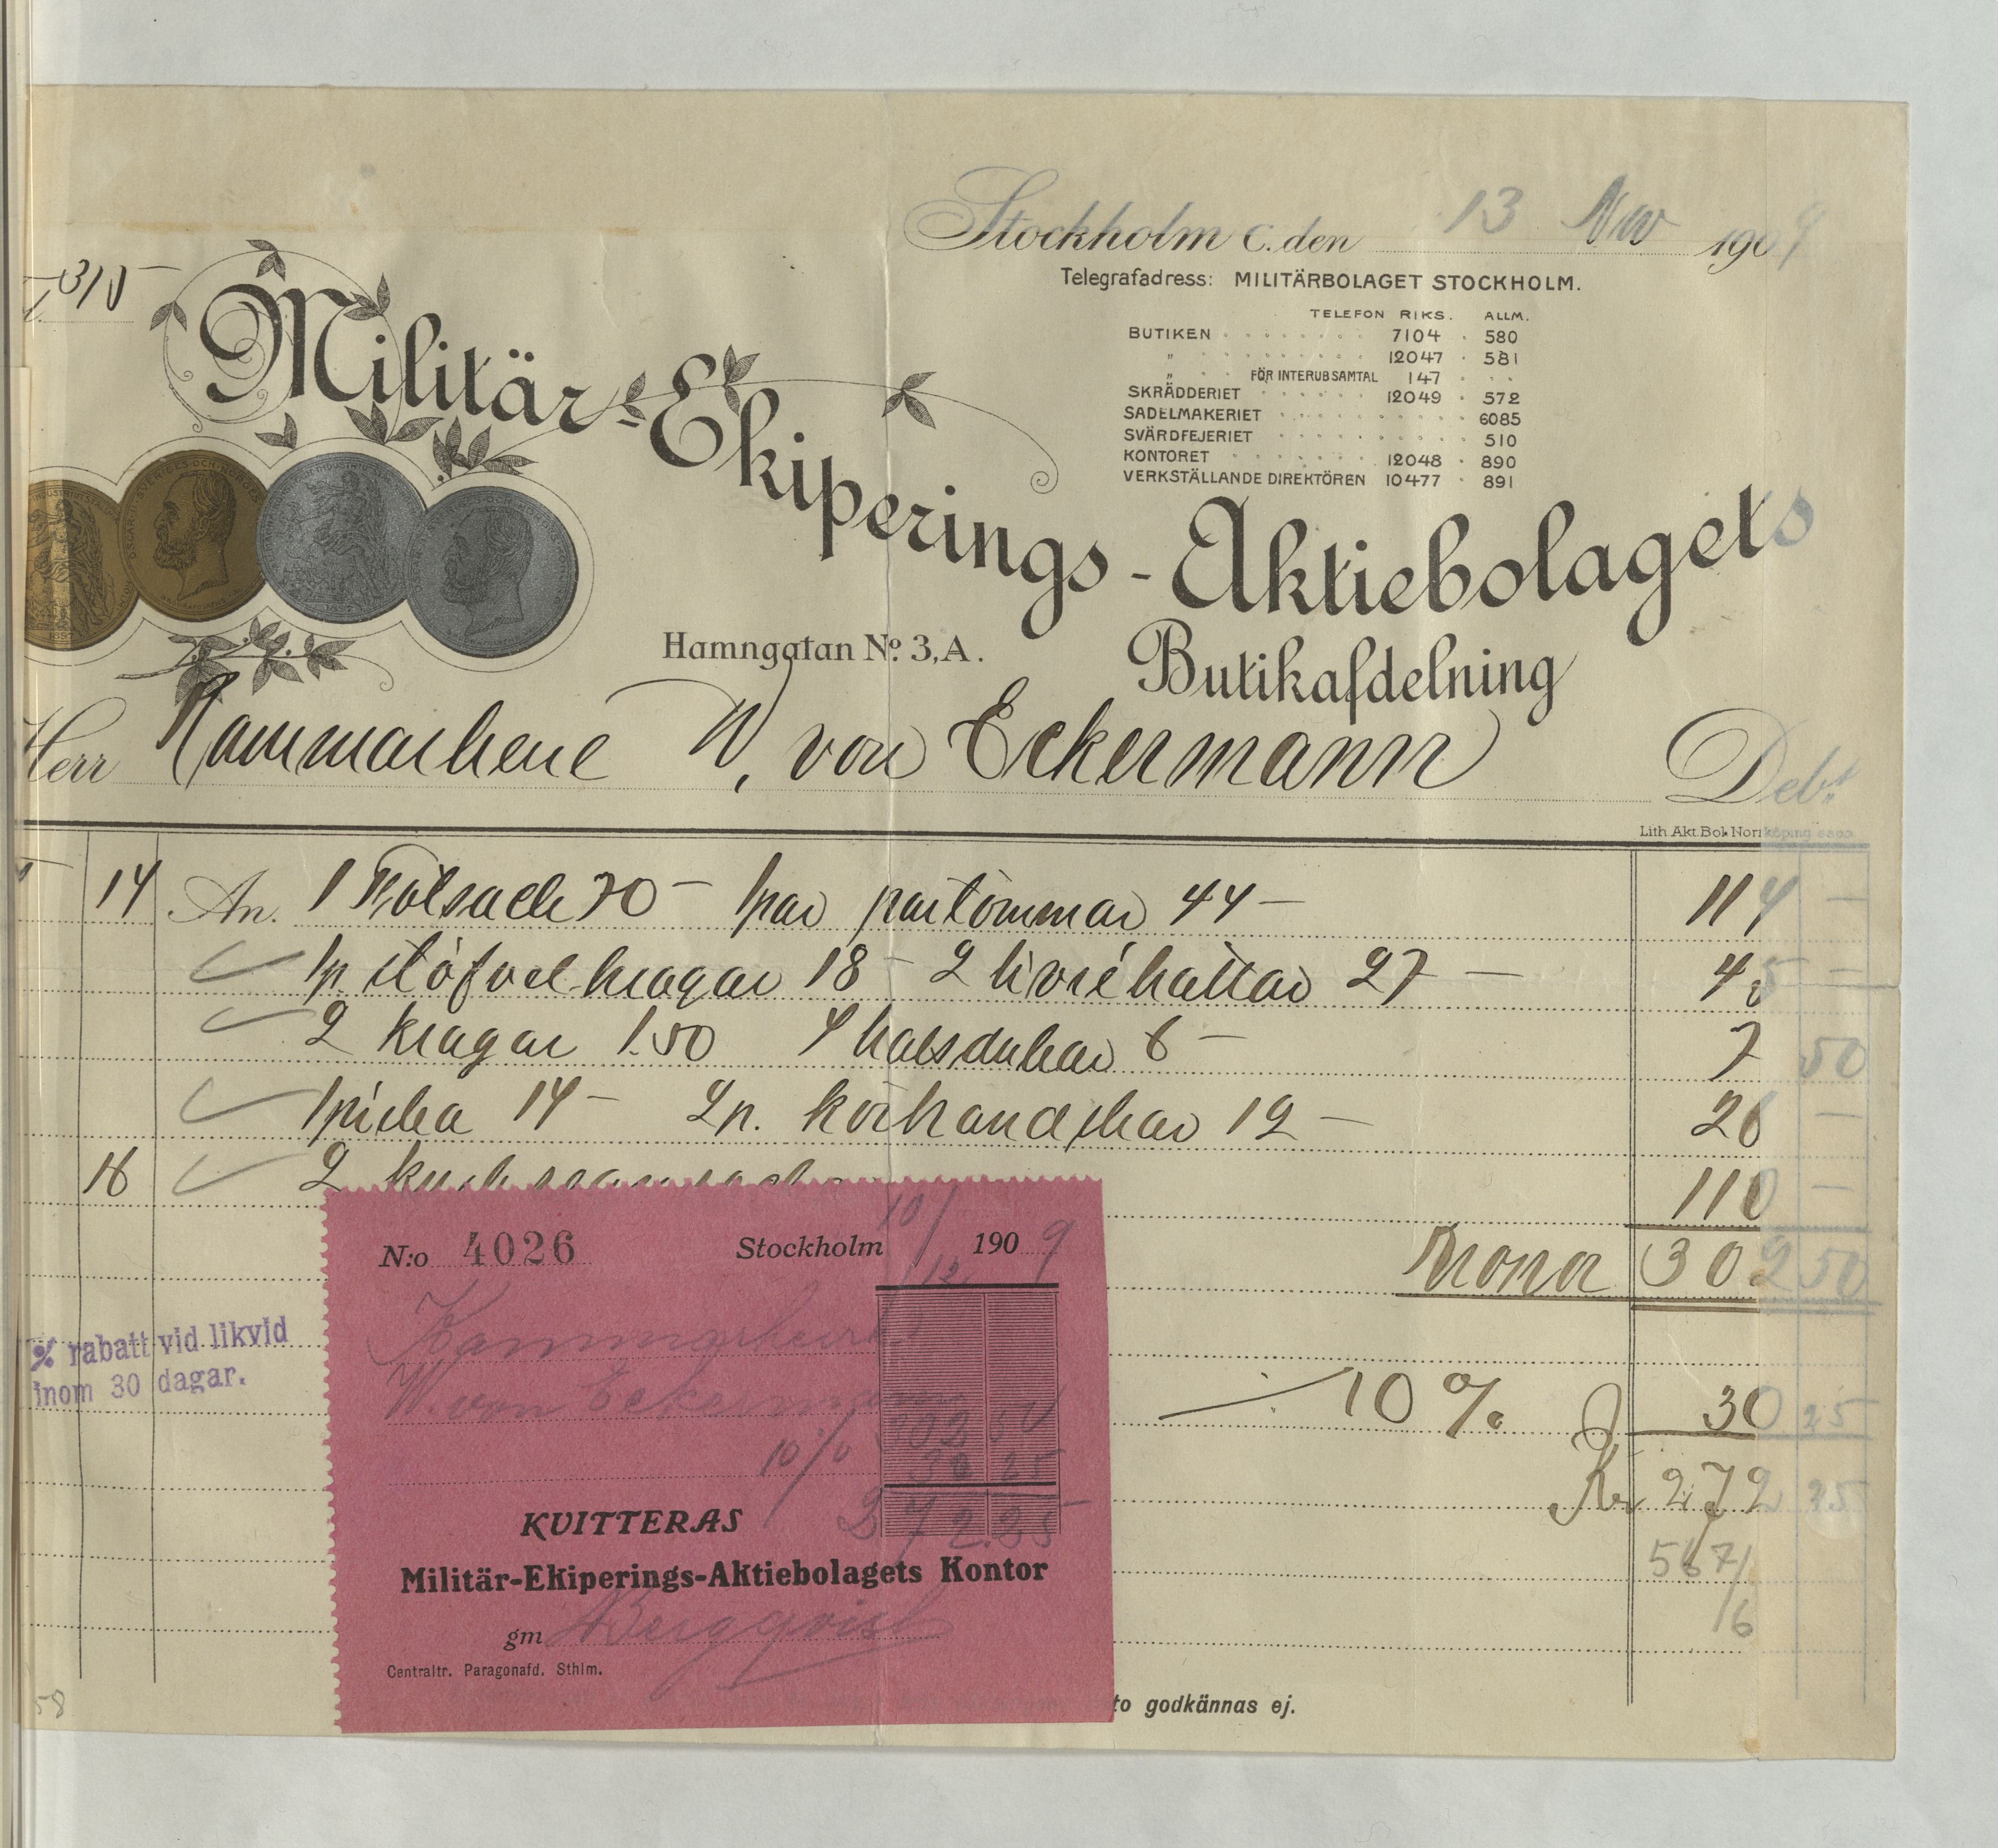 Stockholm C. den 13 Nov 1909
Telegrafadress: MILITÄRBOLAGET STOCKHOLM.
TELEFON RIKS. ALLM.
BUTIKEN 7104 580
" 12047 581
" FÖR INTERUBSAMTAL 147
SKRÄDDERIET 12049 572
SADELMAKERIET 6085
SVÄRDFEJERIET 510
KONTORET 12048 890
VERKSTÄLLANDE DIREKTÖREN 10477 891
Militär-Ekiperings-Aktiebolagets
Hamngatan No. 3,A.
Butikafdelning
Herr Kammarherre W. von Eckermann Debt
Lith. Akt. Bol. Norrköping
14 An. 1 70 - 1 par partömmar 44 - 114 -
1 p. stöfvelkragar 18 - 2 livréhattar 27 - 45 -
2 kragar 1.50 4 halsdukar 6 - 7 50
1 piska 14 - 2 p. körhandskar 12 - 26 -
16 2 110 -
Kronor 302 50
% rabatt vid likvid
inom 30 dagar.
10 % 30 25
Kr 272 25
567/
16
N:o 4026 Stockholm 10/12 1909
Kammarherre
W. von Eckermann
302 50
10 % 30 25
272.25
KVITTERAS
Militär-Ekiperings-Aktiebolagets Kontor
gm Bergqvist
Centraltr. Paragonafd. Sthlm.
to godkännas ej.
58